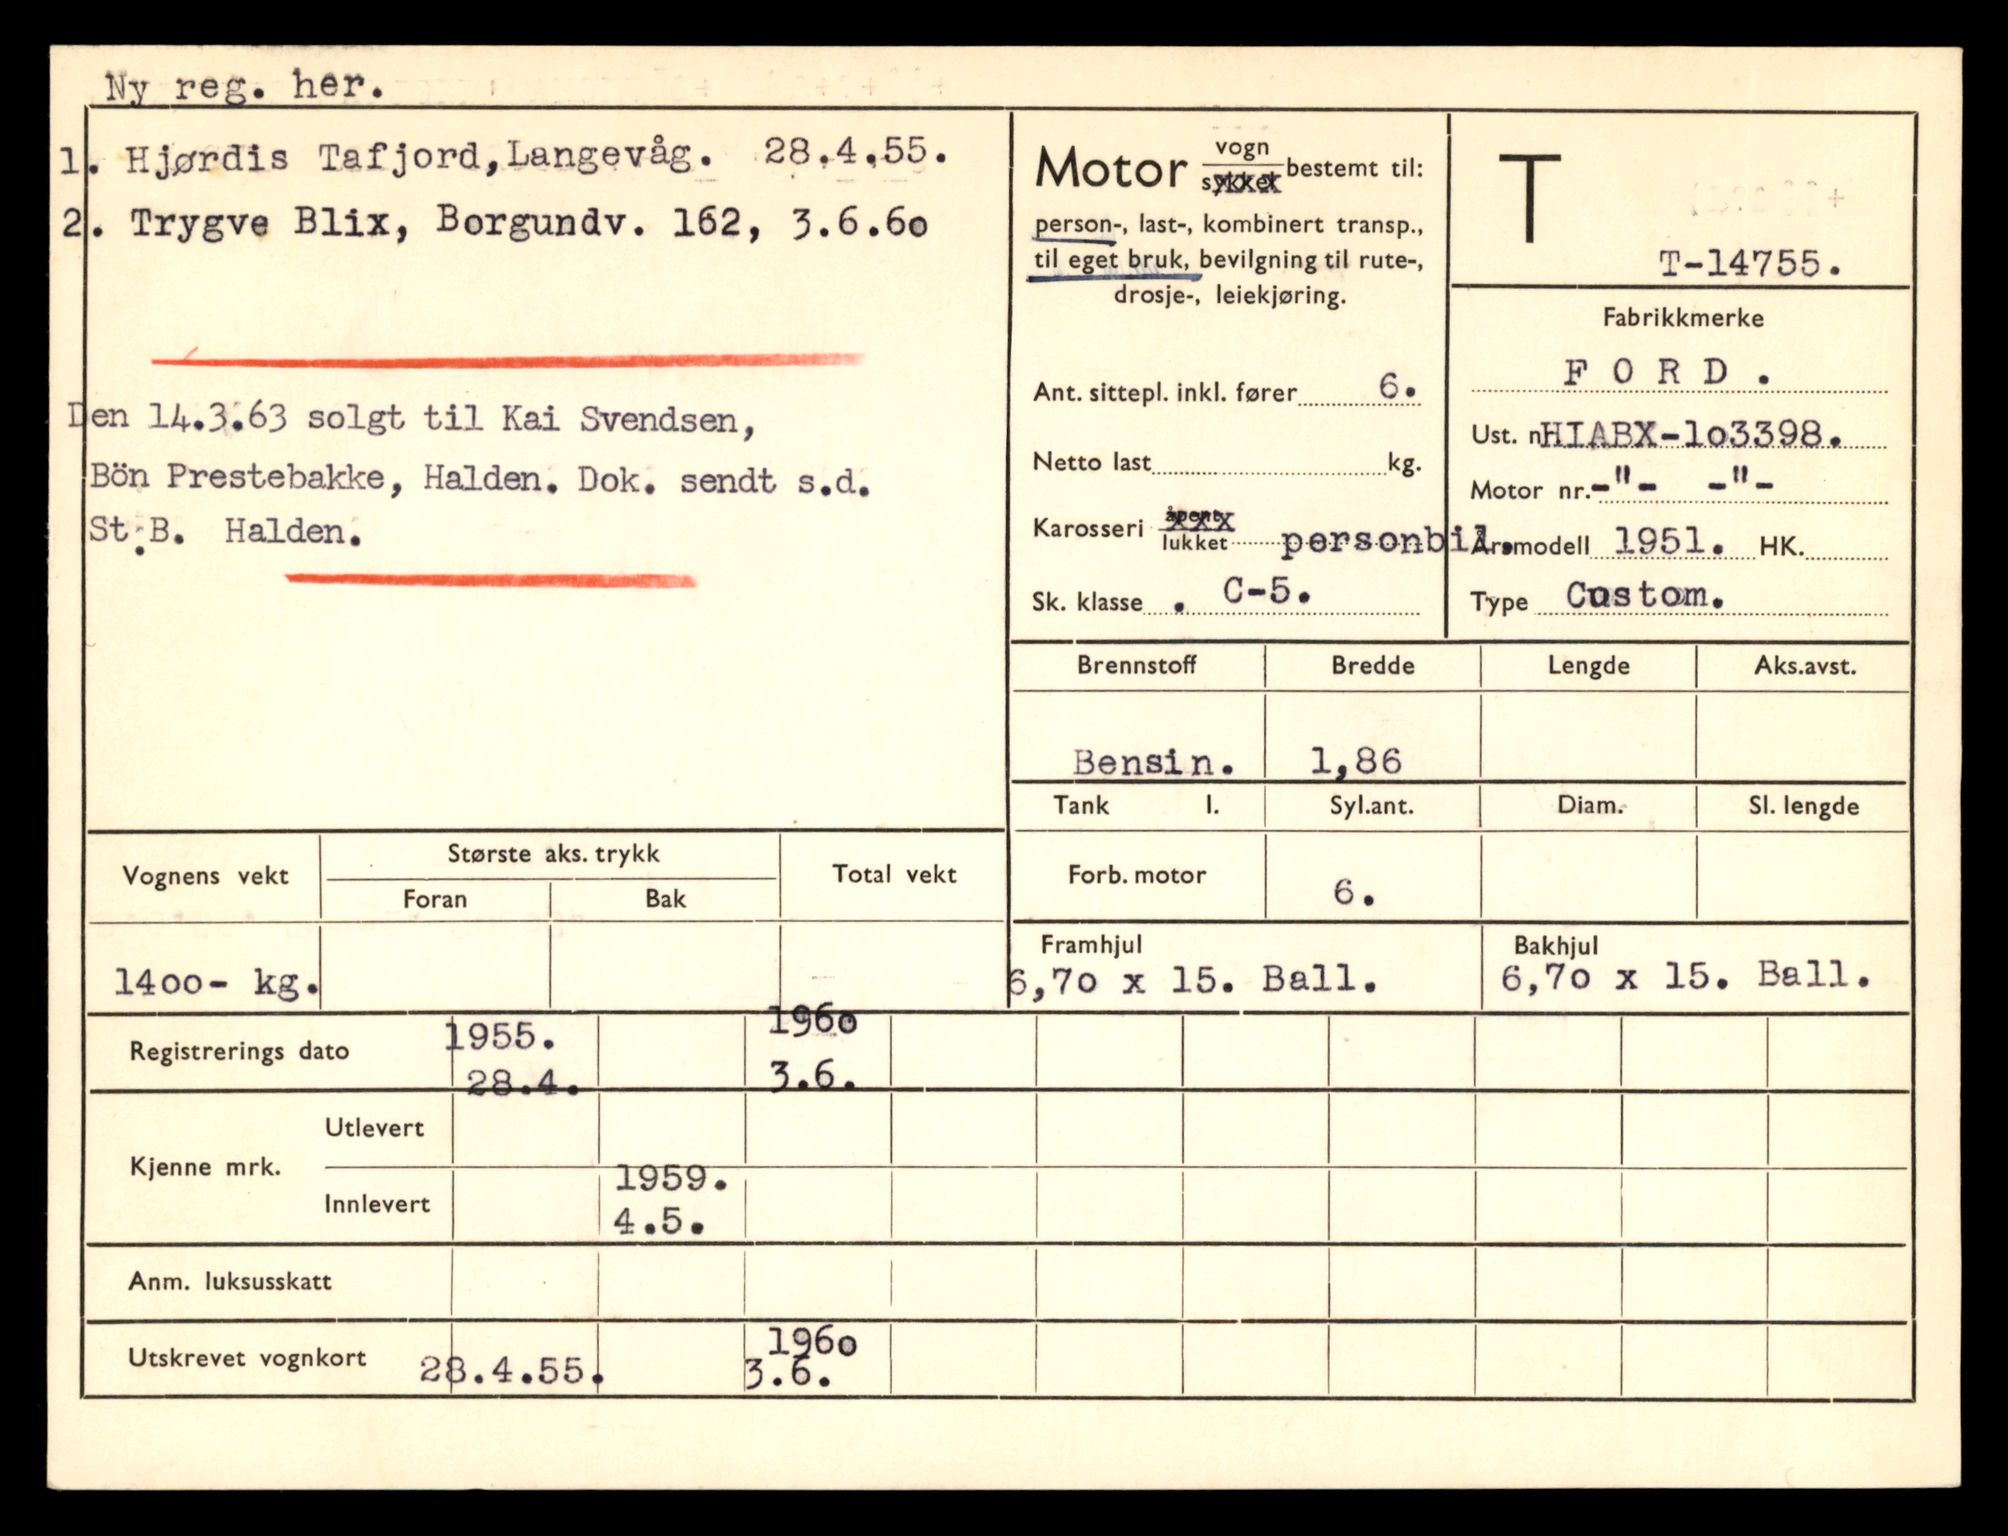 Ny reg. her.
1. Hjørdis Tafjord,Langevåg. 28.4.55.
2. Trygve Blix, Borgundv. 162, 3.6.6o
Den 14.3.63 solgt til Kai Svendsen,
Bön Prestebakke, Halden. Dok. sendt s.d.
St.B. Halden.
Motor vogn sykkel bestemt til:
person-, last-, kombinert transp.,
til eget bruk, bevilgning til rute-,
drosje-, leiekjøring.
Ant. sittepl. inkl. fører 6.
Netto last kg.
Karosseri åpent lukket personbil.
Sk. klasse . C-5.
T
T-14755.
Fabrikkmerke
F O R D .
Ust. nr. HIABX-1o3398.
Motor nr. -"- -"-
Årsmodell 1951. HK.
Type Custom.
Brennstoff Bredde Lengde Aks.avst.
Bensin. 1,86
Tank l. Syl.ant. Diam. Sl. lengde
Forb. motor 6.
Framhjul Bakhjul
6,7o x 15. Ball. 6,7o x 15. Ball.
Vognens vekt Største aks. trykk Total vekt
Foran Bak
14oo- kg.
Registrerings dato 1955. 196o
28.4. 3.6.
Kjenne mrk. Utlevert
Innlevert 1959.
4.5.
Anm. luksusskatt
Utskrevet vognkort 28.4.55. 196o
3.6.